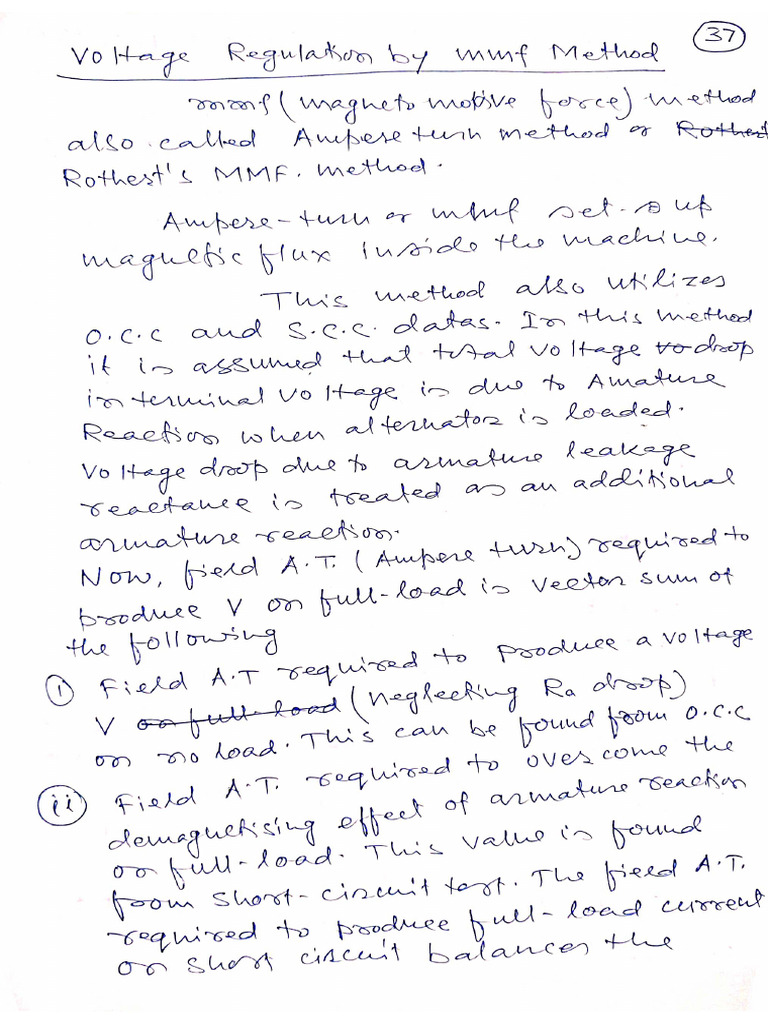 37
Voltage Regulation by mmf Method
mmf (magneto motive force) method
also called Ampere turn method or Rothest
Rothest's MMF. method.
Ampere-turn or mmf set-s up
magnetic flux inside the machine.
This method also utilizes
O.C.C and S.C.C. datas. In this method
it is assumed that total voltage vo drop
in terminal voltage is due to Amature
Reaction when alternator is loaded.
Voltage drop due to armature leakage
reactance is treated as an additional
armature reaction.
Now, field A.T. (Ampere turn) required to
produce V on full-load is vector sum of
the following
(i) Field A.T required to produce a voltage
V on full-load (neglecting Ra drop)
on no load. This can be found from O.C.C
(ii) Field A.T. required to overcome the
demagnetising effect of armature reaction
on full-load. This value is found
from short-circuit test. The field A.T.
required to produce full-load current
on short circuit balances the